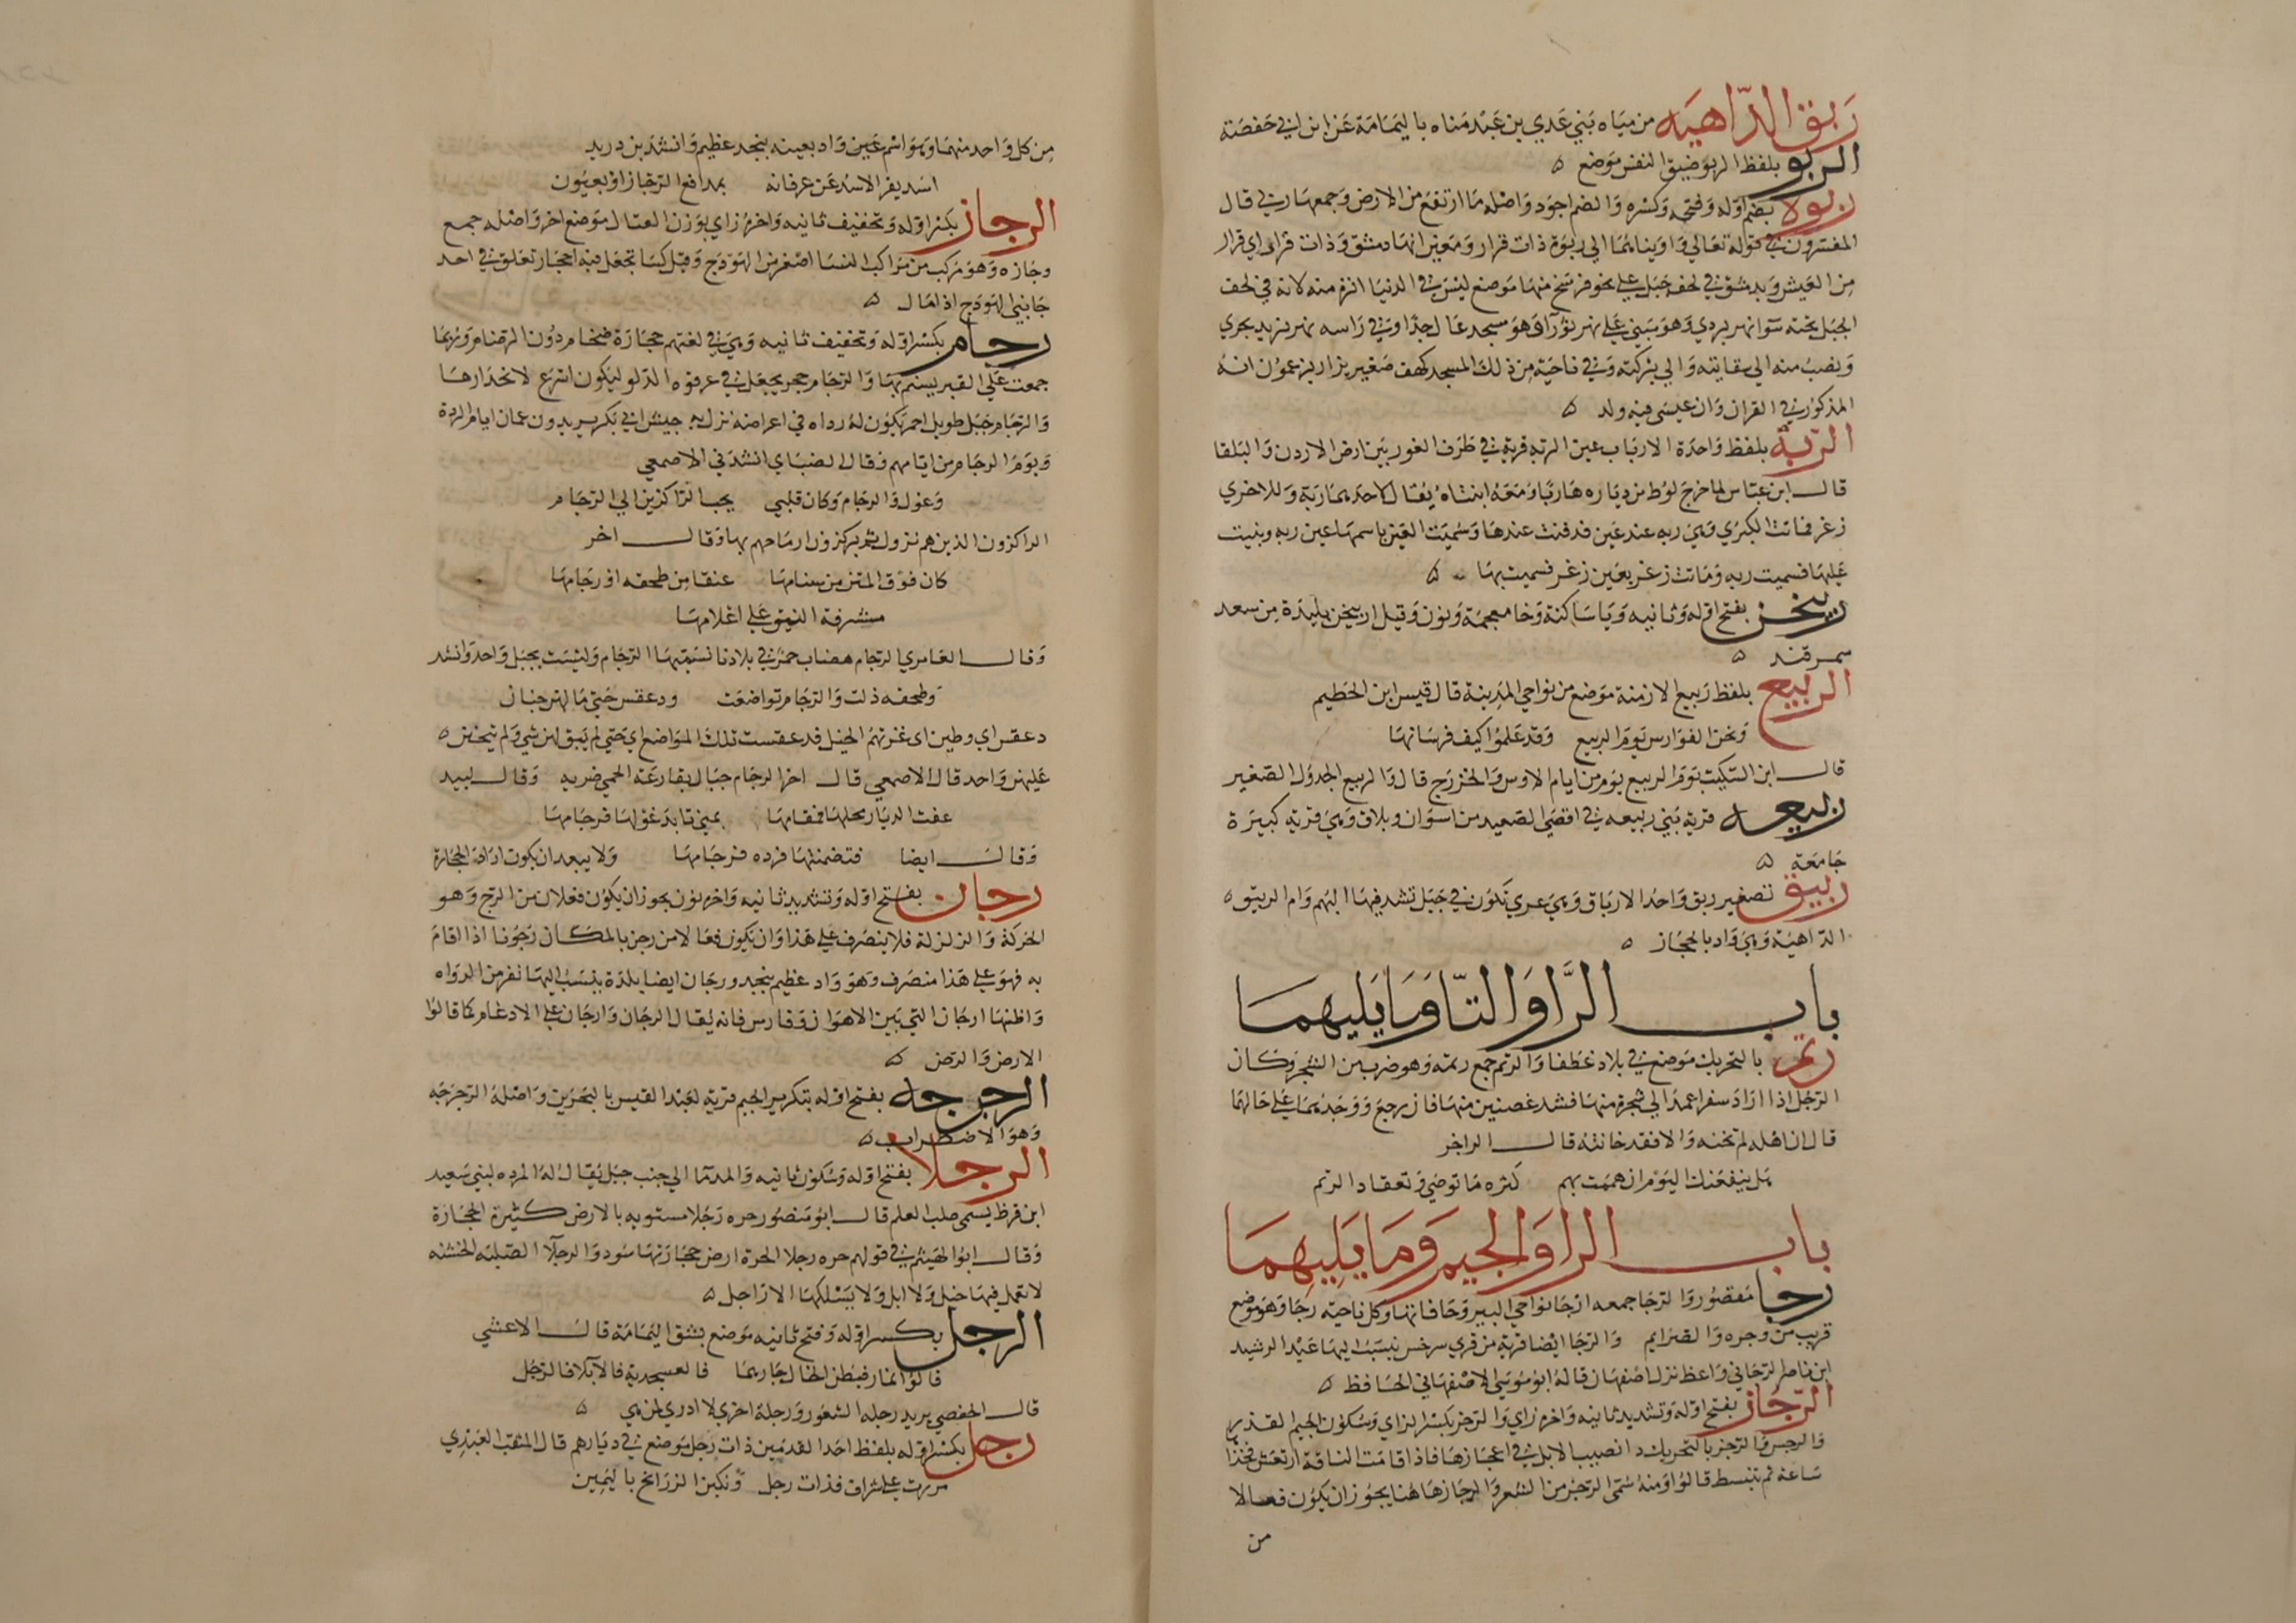 ربق الدّاهيه من مياه بني عدي بن عبد مناه باليمامة عن ابن ابي حفصة
الربو بلفظ الربو ضيق النفس موضع ٥
ربولا بضم اوله وفتحه وكسره والضم اجود واصله ما ارتفع من الارض وجمعها ربي قال
المفسرون في قوله تعالي واويناهما الي ربوة ذات قرار ومعين انها دمشق وذات قرار اي قرار
من العيش وبدمشق في لحف جبل علي نحو فرسخ منها موضع ليس في الدنيا انزه منه لانه في لحف
الجبل تحته سوا نهر بردي وهو مبني علي نهر ثورا وهو مسجد عال جدا وفي راسه نهر يزيد يجري
ويصب منه الي سقايته والي بركته وفي ناحية من ذلك المسجد كهف صغير يزار يزعمون انه
المذكور في القران وان عيسى فيه ولد ٥
الربة بلفظ واحدة الارباب عين الربه قرية في طرف الغور بين ارض الاردن والبلقا
قال ابن عباس لما خرج لوط من دياره هاربا ومعه ابنتاه يقال لاحدهما ربة وللاخري
زغر فماتت الكبري وهي ربه عند عين فدفنت عندها وسميت العين باسمها عين ربه وبنيت
عليها فسميت ربه وماتت زغر بعين زغر فسميت بها ٥
ربيخن بفتح اوله وثانيه ويا ساكنة وخا معجمة ونون وقيل اربيخن بليدة من سعد
سمرقند ٥
الربيع بلفظ ربيع الازمنة موضع من نواحي المدينة قال قيس ابن الخطيم
ونحن الفوارس يوم الربيع وقد علموا كيف فرسانها
قال ابن السكيت يوم الربيع يوم من ايام الاوس والخزرج قال والربيع الجدول الصغير
ربيعه قرية بني ربيعه في اقصي الصعيد من اسوان وبلاق وهي قرية كبيرة
جامعة ٥
ربيق تصغير ربق واحد الارباق وهي عري تكون في جبل تشد فيها البهم وام الربيق ٥
الداهية وهي واد بالحجاز ٥
باب الرَّا والتّا وما يليهما
رتم بالتحريك موضع في بلاد غطفا والرتم جمع رتمه وهو ضرب من الشجر وكان
الرجل اذا اراد سفرا عمد الي شجرة منها فشد غصنين منها فان رجع ووجدهما علي حالهما
قال ان اهله لم تخنه والا فقد خانته قال الراجز
هل ينفعنك اليوم ان همت بهم كثره ما توصي وتعقاد الرتم
باب الرا والجيم وما يليهما
رجا مقصور والرجا جمعه ارجا نواحي البير وحافاتها وكل ناحيه رجا وهو موضع
قريب من وجره والصرايم والرجا ايضا قرية من قري سرخس ينسب اليها عبد الرشيد
ابن ناصر الرجاني واعظ نزل اصفهان قاله ابو موسي الاصفهاني الحافظ ٥
الرّجّاز بفتح اوله وتشديد ثانيه واخره زاي والرجز بكسر الزاي وسكون الجيم القذر
والرجس والرجز بالتحريك دا نصيب الابل في اعجازها فاذا قامت الناقة ارتعش فخذا
ساعة ثم تنبسط قالوا ومنه سمي الرجز من الشعر والرجاز هاهنا يجوز ان يكون فعالا
من
من كل واحد منهما وهو اسم عين واد بعينه بنجد عظيم وانشد بن دريد
اسد يفر الاسد عن عرفانه بمدافع الرجاز او بعيون
الرجاز بكسر اوله وتخفيف ثانيه واخره زاي بوزن القتال موضع اخر واصله جمع
وجازه وهو مركب من مراكب النسا اصغر من الهودج وقيل كسا تجعل فيه احجار تعلق في احد
جانبي الهودج اذا مال ٥
رجام بكسر اوله وتخفيف ثانيه وهي في لغتهم حجارة ضخام دون الرضام وربما
جمعت علي القبر يسنم بها والرجام حجر يجعل في عرقوه الدلو ليكون اسرع لانحدارها
والرجام جبل طويل احمر يكون له رداه في اعراضه نزل به جيش ابي بكر يريدون عمان ايام الردة
ويوم الرجام من ايامهم وقال الضبابي انشدني الاصمعي
وغول والرجام وكان قلبي يحب الراكزين الي الرجام
الراكزون الذين هم نزول ثم يركزون ارماحهم بها وقال اخر
كان فوق المتن من سنامها عنقا من طحفه او رجامها
مشرفة النيق علي اعلامها
وقال العامري الرجام هضاب حمر في بلادنا نسميها الرجام وليست بجبل واحد وانشد
وطحفه ذلت والرجام تواضعت ودعقس حتي ما لهن جنان
دعقس اي وطين اي غزتهم الخيل فدعقست تلك المواضع اي حتي لم يبق لهن شي ولم تيحنن ٥
عليهن واحد قال الاصمعي قال اخر الرجام جبال بقارعة الحمي ضريه وقال لبيد
عفت الديار محلها فمقامها بمني تابد غولها فرجامها
وقال ايضا فتضمنتها فرده فرجامها ولا يبعد ان يكون اراد الحجارة
رجان بفتح اوله وتشديد ثانيه واخره نون يجوز ان يكون فعلان من الرج وهو
الحركة والزلزلة فلا ينصرف علي هذا وان يكون فعالا من رجن بالمكان رجونا اذا اقام
به فهو علي هذا منصرف وهو واد عظيم بنجد ورجان ايضا بلدة ينسب اليها نفر من الرواه
واظنها ارجان التي بين الاهواز وفارس فانه يقال الرجان وارجان علي الادغام كما قالوا
الارض والرض ٥
الرجرجه بفتح اوله بتكرير الجيم قرية لعبد القيس بالبحرين واصله الرجرجه
وهو الاضطراب ٥
الرجلا بفتح اوله وسكون ثانيه والمد ما الي جنب جبل يقال له المرده لبني سعيد
ابن قرط يسمي صلب العلم قال ابو منصور حره رجلا مستويه بالارض كثيرة الحجارة
وقال ابوا الهيثم في قولهم حره رجلا الحرة ارض حجارتها سود والرجلا الصلبه الخشنه
لا تعمل فيها خيل ولا ابل ولا يسلكها الا راجل ٥
الرجل بكسر اوله وفتح ثانيه موضع بشق اليمامة قال الاعشي
قالوا نمار فبطن الخال جادهما فالعسجدية فالابلا فالرجل
قال الحفصي يريد رجلة الشعور ورجلة اخري لا ادري لمن هي ٥
رجل بكسر اوله بلفظ احد القدمين ذات رجل موضع في ديارهم قال المثقب العبدي
مررت علي شراف فذات رجل ونكبن الزرانح باليمين